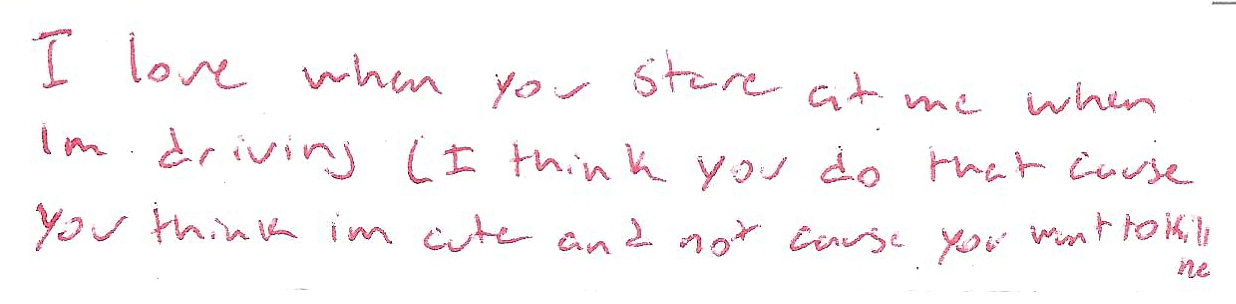 I love when you stare at me when
Im driving (I think you do that cause
you think im cute and not cause you want to kill
me